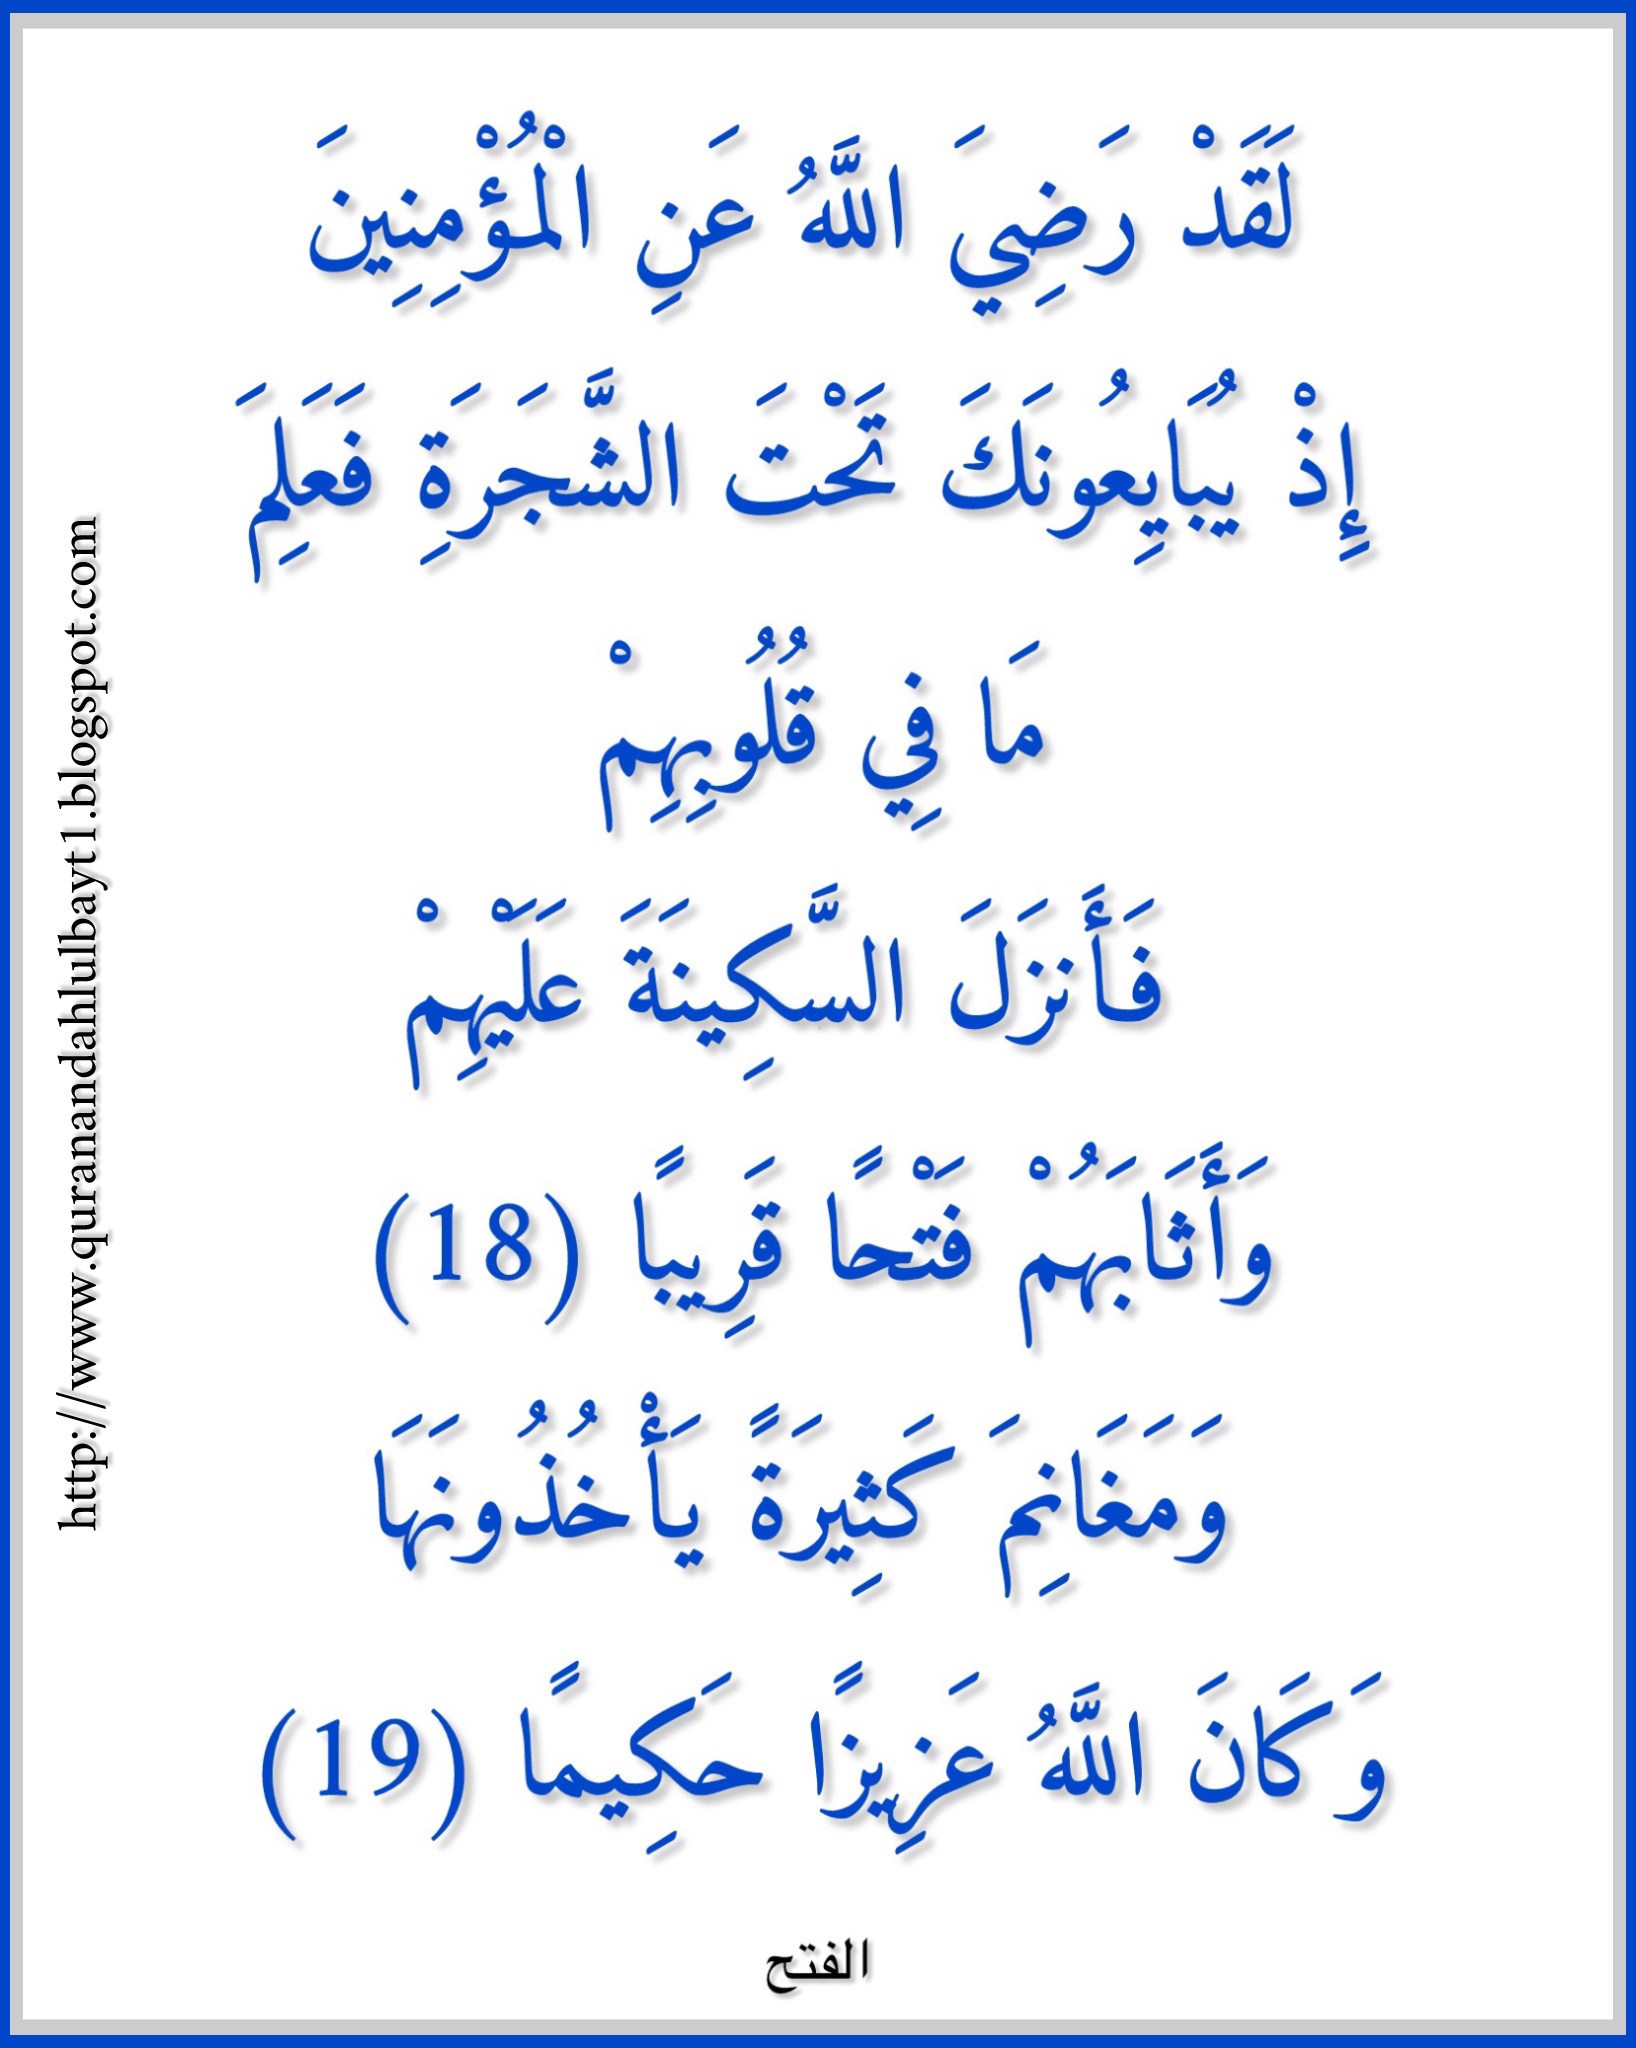 لَقَدْ رَضِيَ اللَّهُ عَنِ الْمُؤْمِنِينَ
إِذْ يُبَايِعُونَكَ تَحْتَ الشَّجَرَةِ فَعَلِمَ
مَا فِي قُلُوبِهِمْ
فَأَنزَلَ السَّكِينَةَ عَلَيْهِمْ
وَأَثَابَهُمْ فَتْحًا قَرِيبًا (18)
وَمَغَانِمَ كَثِيرَةً يَأْخُذُونَهَا
وَكَانَ اللَّهُ عَزِيزًا حَكِيمًا (19)
الفتح
http://www.quranandahlulbayt1.blogspot.com